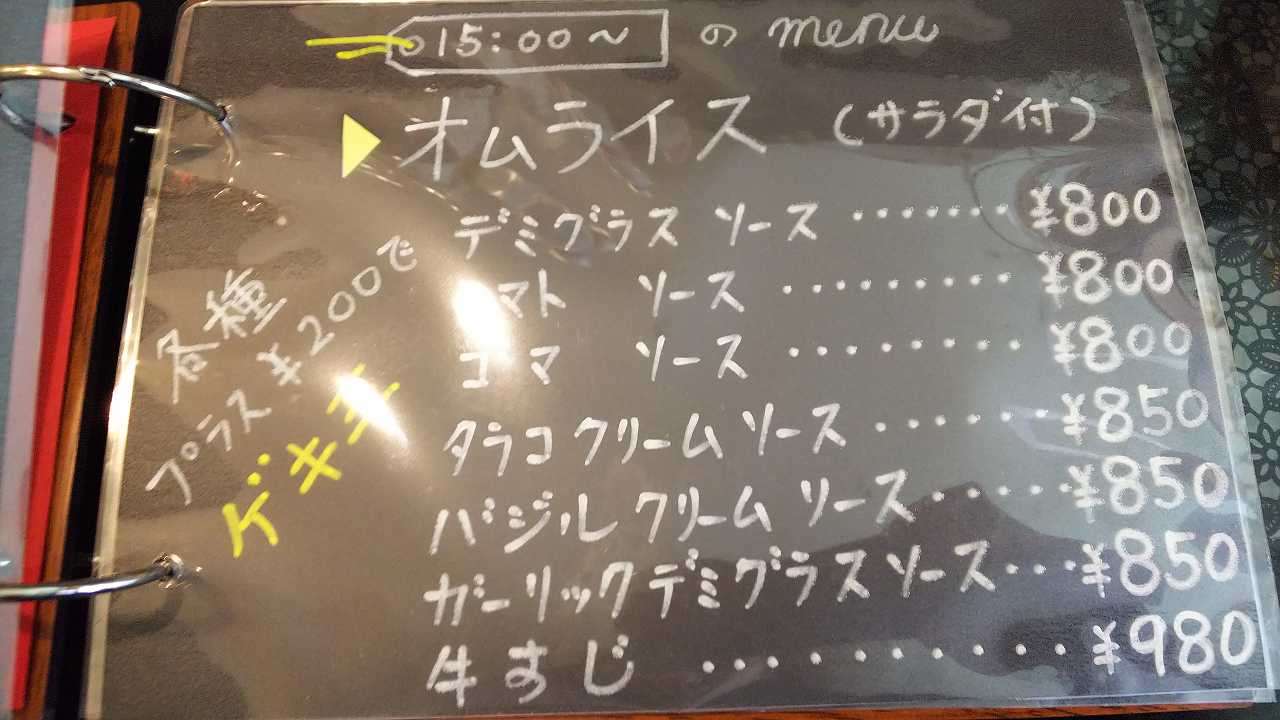 15:00～ の menu
オムライス (サラダ付)
デミグラス ソース ‥‥‥‥ ¥800
トマト ソース ‥‥‥‥‥ ¥800
コマ ソース ‥‥‥‥‥ ¥800
タラコ クリーム ソース ‥‥‥‥ ¥850
バジル クリーム ソース ‥‥‥ ¥850
ガーリック デミグラス ソース ‥‥ ¥850
牛すじ ‥‥‥‥‥‥ ¥980
各種
プラス ¥200で